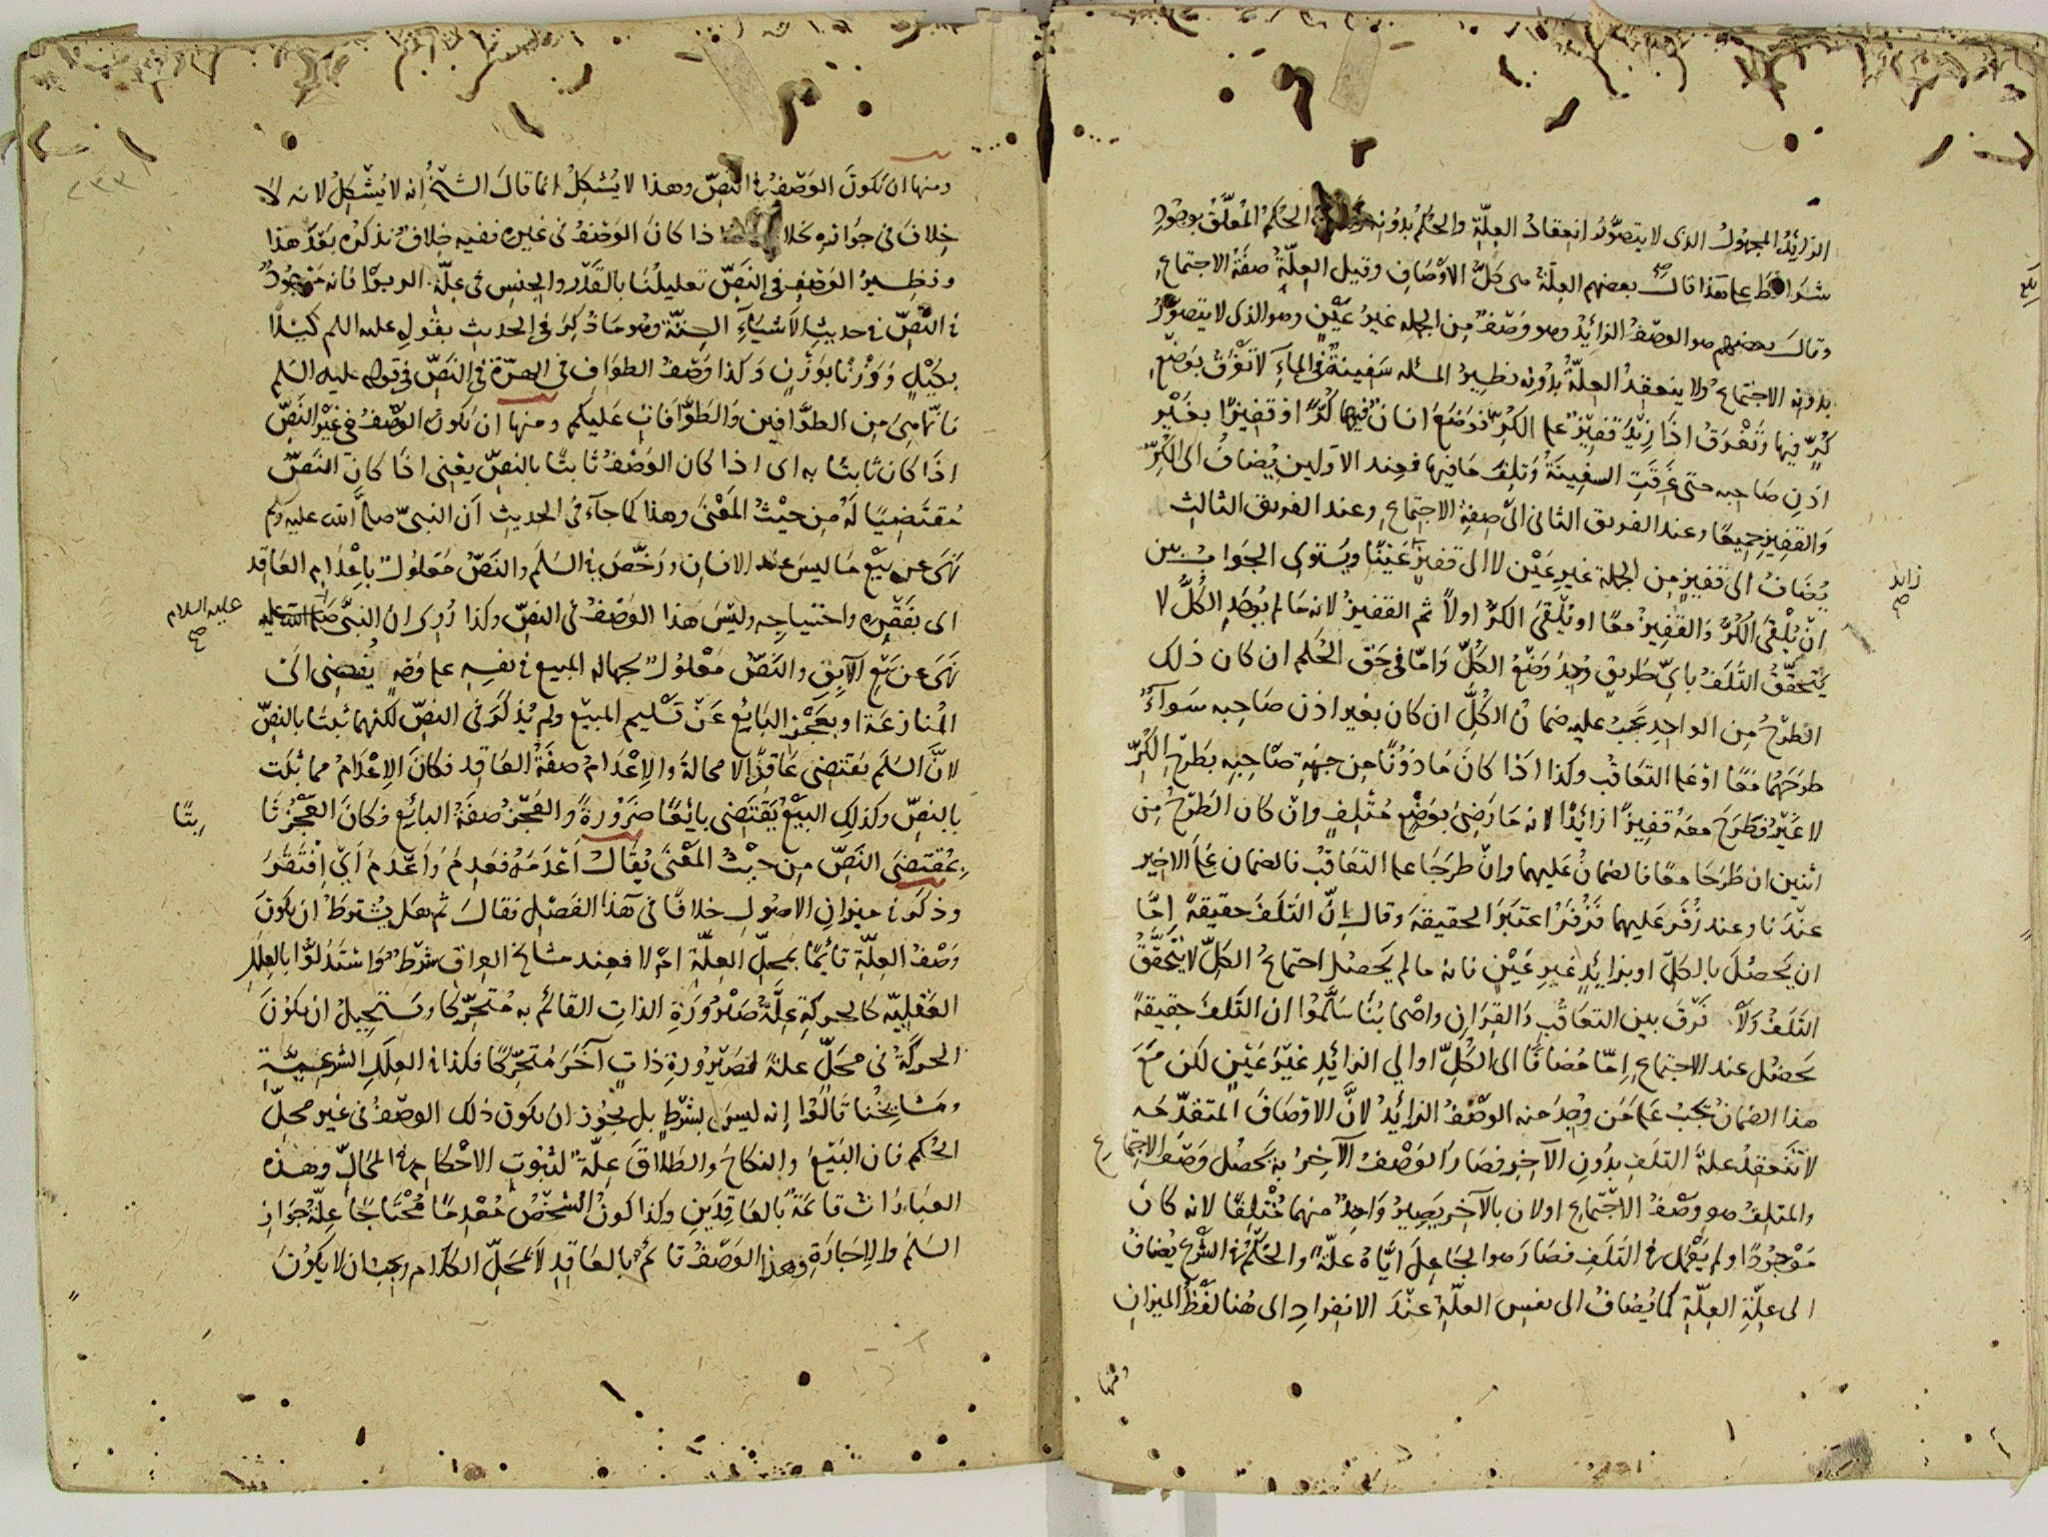 الزايدُ المجهولُ الذى لا يتصوّرُ انعقادُ العِلّةِ والحُكم بدُونِه الحُكم المُعلَّقُ بوجُودِ
شرايط على هذا قال بعضهم العِلّةُ هى كلُّ الاوْصَافِ وقيل العِلّةُ صفةُ الاجتماعِ
وقالَ بعضهم هو الوصفُ الزايدُ وهو وَصْفٌ مِن الجملهِ غيرُ عَيْنٍ وهو الذى لا يتصوّرُ
بدونه الاجتماعُ ولا ينعقدُ العِلّةُ بدُونِه نظيرُ المسئله سَفِينةٌ فى الماءِ لا تَغْرَقُ بوَضْعِ
كُرٍّ فيها وتَغْرَقُ اذَا زِيْدَ قفِيْزٌ على الكرِّ فوَضَعَ انسانٌ فيها كُرًّا اوقفِيزًا بغَيْرِ
اذنِ صَاحبِه حتى غَرقَتِ السفِينَةُ وتلِفَ مَا فيها فعِند الاوّلين يُضافُ الى الكرِّ
والقفِيزِ جميعًا وعند الفريق الثانى الى صِفةِ الاجتماعِ وعند الفريق الثالث
يُضَافُ الى قفيزٍ مِن الجملة غيرِ عَيْن لا الى قفيزٍ عَيْنًا ويَسْتوى الجَوابُ بين
انْ يُلْقىَ الكُرُّ والقَفِيزُ معًا او يُلْقىَ الكرُّ اولًا ثم القفيزُ لانه مَا لم يُوجَدِ الكُلُّ لا
يَتحقّقُ التَلَفُ باىِّ طريقٍ وُجِدَ وَضْعُ الكُلِّ وامّا فى حَق الحُكم ان كان ذلك
الطرْحُ مِن الواحِدِ يجِبُ عليه ضمانُ الكُلِّ ان كان بغير اذن صَاحبِه سَوآءٌ
طرحَهُما معًا اوْ على التعَاقُب وكذا اذا كانَ مَاذوْنًا مِن جِهَةِ صَاحِبِه بطَرْحِ الكُرِّ
لا غَيْرُ فطَرَحَ معَهُ قفِيزًا زايدًا لانه مَا رَضِىَ بوَضْعٍ مُتْلِفٍ وان كان الطَرْحُ مِن
اثنين ان طَرَحَا معًا فالضمانُ عَليهما وانْ طرحَا على التعَاقُبِ فالضمان على الاخير
عنْدَنا وعند زُفَر عَليهما فزُفَرُ اعتبَرَ الحقيقةَ وقال انّ التَلَفَ حقيقةً إمّا
ان يَحصُلَ بالكلِّ اوبزايدٍ غيرِ عَيْنٍ فانه ما لم يَحصُل اجتماعُ الكلِّ لا يتَحقّقُ
التَلَفُ وَلا فَرْقَ بين التعَاقُبِ والقِرَانِ واصْحابُنا سَلَّمُوا ان التَلَفَ حقِيقةً
يَحصُل عند الاجتماعِ إمّا مُضافًا الى الكُلِّ اوالى الزايدِ غيْرِ عَيْنٍ لكن معَ
هذا الضمانُ يجبُ على مَن وُجِدَ منه الوصْفُ الزايدُ لانَّ الاوصَافَ المتقدّمه
لا تنْعَقِدُ علةَ التلَفِ بدُونِ الآخِرِ فصَارَ الوَصْفُ الآخِرُ به يَحصُل وَصْف الاجتماع
والمتلِف هو وَصْفُ الاجْتماعِ اولان بالآخِرِ يَصِيرُ وَاحِدٌ منهما مُتْلِفًا لانه كانَ
مَوْجودًا ولم يَعْمل فى التَلَفِ فصَارَ هو الجَاعِلَ ايّاهُ علّةً والحُكْمُ فى الشّرْعِ يُضافُ
الى عِلّةِ العِلّةِ كما يُضافُ الى نفس العلّةِ عنْدَ الانفِرادِ الى هُنا لفظُ الميزانِ
زايد
صح
ومنها
ومنها ان يكونَ الوَصْفُ فى النَصِّ وهذا لا يُشكِلُ انما قالَ الشيْخُ إنه لا يُشكِلُ لانه لا
خِلافَ فى جوازِه بخلاف ما اذا كانَ الوَصْفُ فى غيرِه ففيه خِلافٌ نذكرُه بَعْدَ هذا
ونظِيرُ الوَصْفِ فى النَصِّ تعليلُنا بالقَدْرِ والجِنسِ فى عِلّةِ الربوا فانه مَوْجُودٌ
فى النَّصِّ فى حديثِ الاَشيآءِ السِتّة وهو مَا ذُكِرَ فى الحديث بقولِه عليه السلم كَيْلًا
بكَيْلٍ ووَزْنًا بوَزْنٍ وكذا وَصْفُ الطوافِ فى الهِرّة فى النَصِّ فى قوله عليه السلم
فانّها مِن الطوَّافين والطوَّافات عليكم ومنها ان يكون الوصْفُ فى غَيْرِ النَصِّ
اذَا كان ثابتًا به اى اذا كان الوَصْفُ ثابتًا بالنصِّ يعْنى اذا كانَ النَصُّ
مُقتَضِيًا لَهُ مِن حَيْثُ المَعْنى وهذا كما جآءَ فى الحديث اَن النبىّ صلى الله عليه وسلم
نَهَى عن بيْعِ مَا ليسَ عندَ الانسانِ ورَخّصَ فى السَلَم والنَصُّ مَعْلُولٌ باِعْدَامِ العَاقدِ
اى بفَقْرِه واحتياجِه وليْسَ هَذا الوَصْفُ فى النصِّ وكذا رُوِىَ ان النبىَّ صلى الله عليه
نَهى عن بَيْعِ الآبِقِ والنَصُّ مَعْلُولٌ بجهالة المبيع فى نفسِه على وَجْهٍ يُفضِى الى
المُنازعَة او بعَجْزِ البَايع عَنْ تسْليم المبيْعِ ولم يُذكَرَ فى النصِّ لكنهما ثبتَا بالنصِّ
لانَّ السَلَم يَقتضِى عَاقِدًا لا محالةَ والإعْدَامُ صِفَةُ العَاقِدِ فكانَ الاِعْدَامُ مما ثبَت
بالنصِّ وكذلِك البَيْعُ يَقتَضِى بايعًا ضَرُورةً والعَجْزُ صفَةُ البايعِ فكانَ العَجْزُ ثَا
بِمُقتضىَ النَصِّ مِن حيْثُ المَعْنى يُقالُ اَعْدَمَهُ فعَدِمَ واَعْدَمَ اَىْ افْتَقَرَ
وذكَر فى ميزانِ الاصُولِ خلافًا فى هَذا الفَصْلِ فقالَ ثم هَل يُشْتَرَطُ ان يكونَ
وَصْفُ العِلّةِ قايمًا بمحلِّ العِلّةِ امْ لا فعِند مشايخ العِراقِ شَرْطٌ واسْتَدَلوُّا بالعِلَلِ
العَقْلِيّه كالحركةِ عِلّةٌ صَيْرُورَةِ الذاتِ القائمِ به مُتحَرِّكا ويَستَحِيلُ ان يكونَ
الحَركةُ فى مَحَلٍّ علةً لصَيْرُورةِ ذاتٍ آخَرَ مُتحَرِّكًا فكذا فى العِلَلِ الشرْعِيّةِ
ومَشايخُنا قَالُوا إنه ليسَ بشَرْطٍ بل يجوز ان يكون ذلك الوصْفُ فى غير محلِّ
الحُكم فان البَيْعَ والنكاحَ والطلاقَ عِلّةٌ لثبُوتِ الاحْكامِ فى المَحَالِّ وهذه
العبَاراتُ قايمَةٌ بالعَاقِدَينِ وكذا كونُ الشخْصِ مُعْدِمًا مُحْتَاجًا عِلّةُ جَوازِ
السَلَمِ والاِجَارَةِ وهذا الوَصْفُ قايمٌ بالعَاقدِ لا بمحَلِّ الكلام يجب ان لا يكونَ
عليه السلام
صح
بتًا
٢٣٣